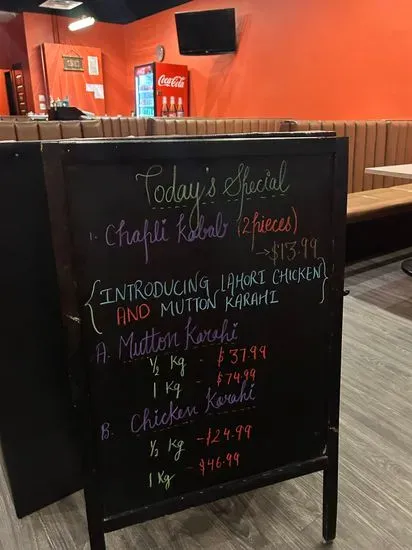 Coca-Cola
Today's Special
1. Chapli Kabab (2 pieces)
→ $13.99
{INTRODUCING LAHORI CHICKEN
AND MUTTON KARAHI}
A. Mutton Karahi
1/2 Kg - $37.99
1 Kg - $74.99
B. Chicken Karahi
1/2 Kg - $24.99
1 Kg - $46.99